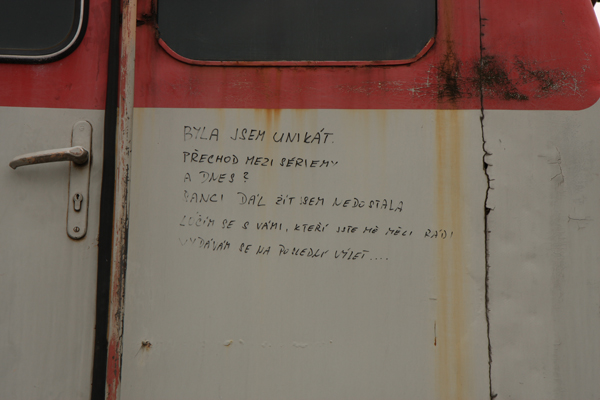 BYLA JSEM UNIKÁT.
PŘECHOD MEZI SÉRIEMI
A DNES?
ŠANCI DÁL ŽÍT JSEM NEDOSTALA
LOUČÍM SE S VÁMI, KTEŘÍ JSTE MĚ MĚLI RÁDI
VYDÁVÁM SE NA POSLEDNÍ VÝLET....